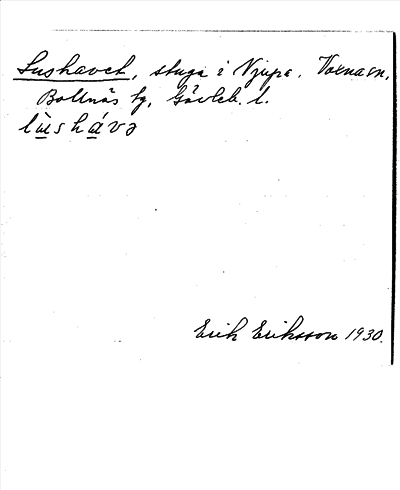 Lushavet, stuga i Njupe. Voxna sn,
Bollnäs tg, Gävleb. l.
lùshávə
Erik Eriksson 1930.